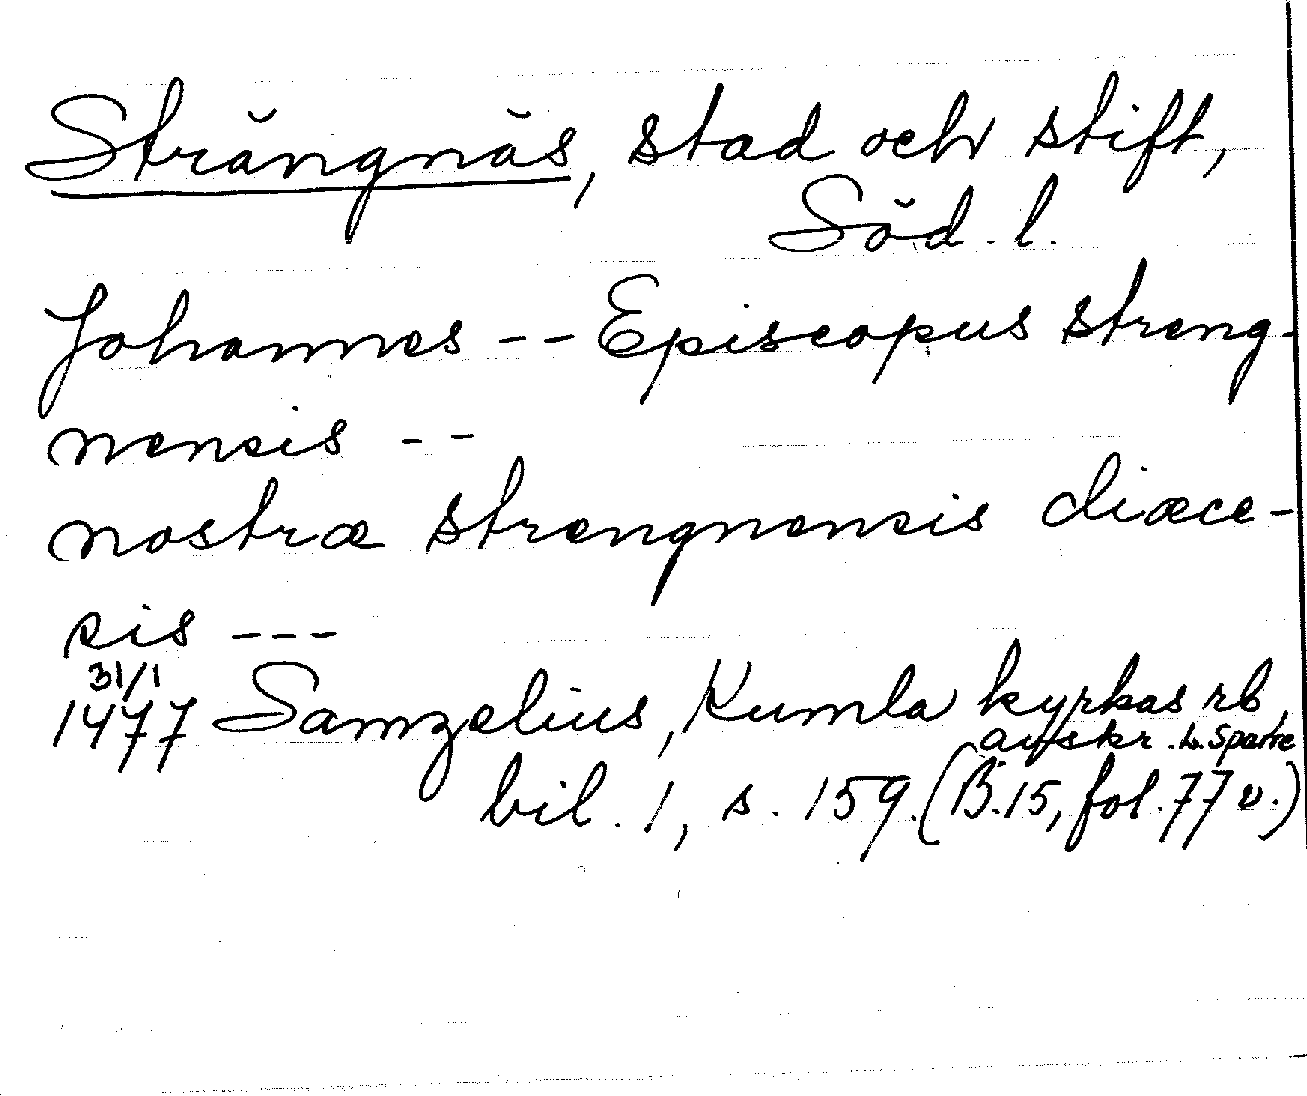 Strängnäs, stad och stift,
Söd. l.
Johannes -- Episcopus streng-
nensis --
nostræ strengnensis diæce-
sis ---
31/1
1477 Samzelius, Kumla kyrkas rb,
avskr. L. Sparre
bil. 1, s. 159. (B.15, fol. 77 v.)